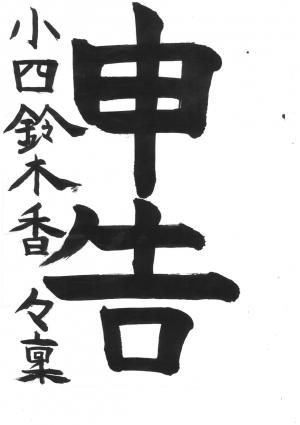 申告
小四鈴木香々凜